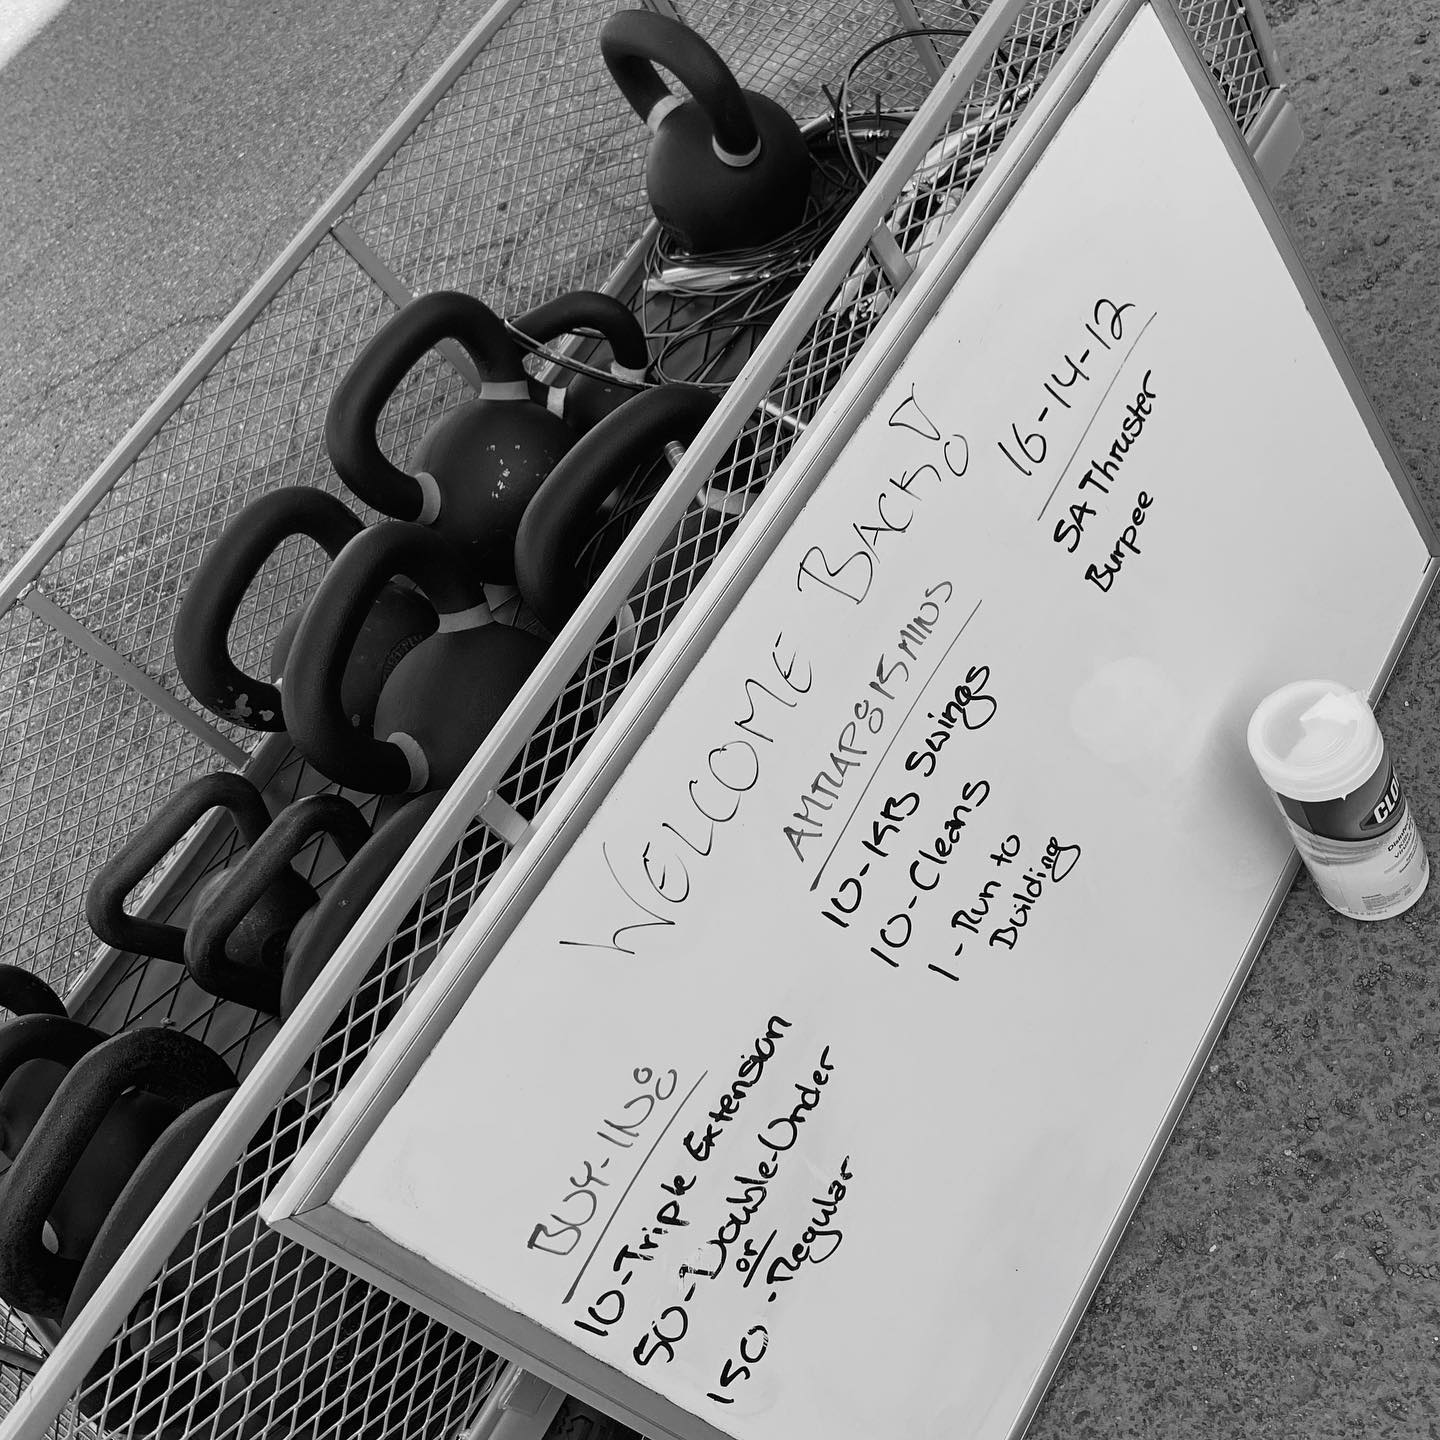 WELCOME BACK!
BUY-IN:
10-Triple Extension
50-Double-Under
or
150-Regular
AMRAP: 15 MINS
10-KB Swings
10-Cleans
1-Run to
Building
16-14-12
SA Thruster
Burpee
CLO